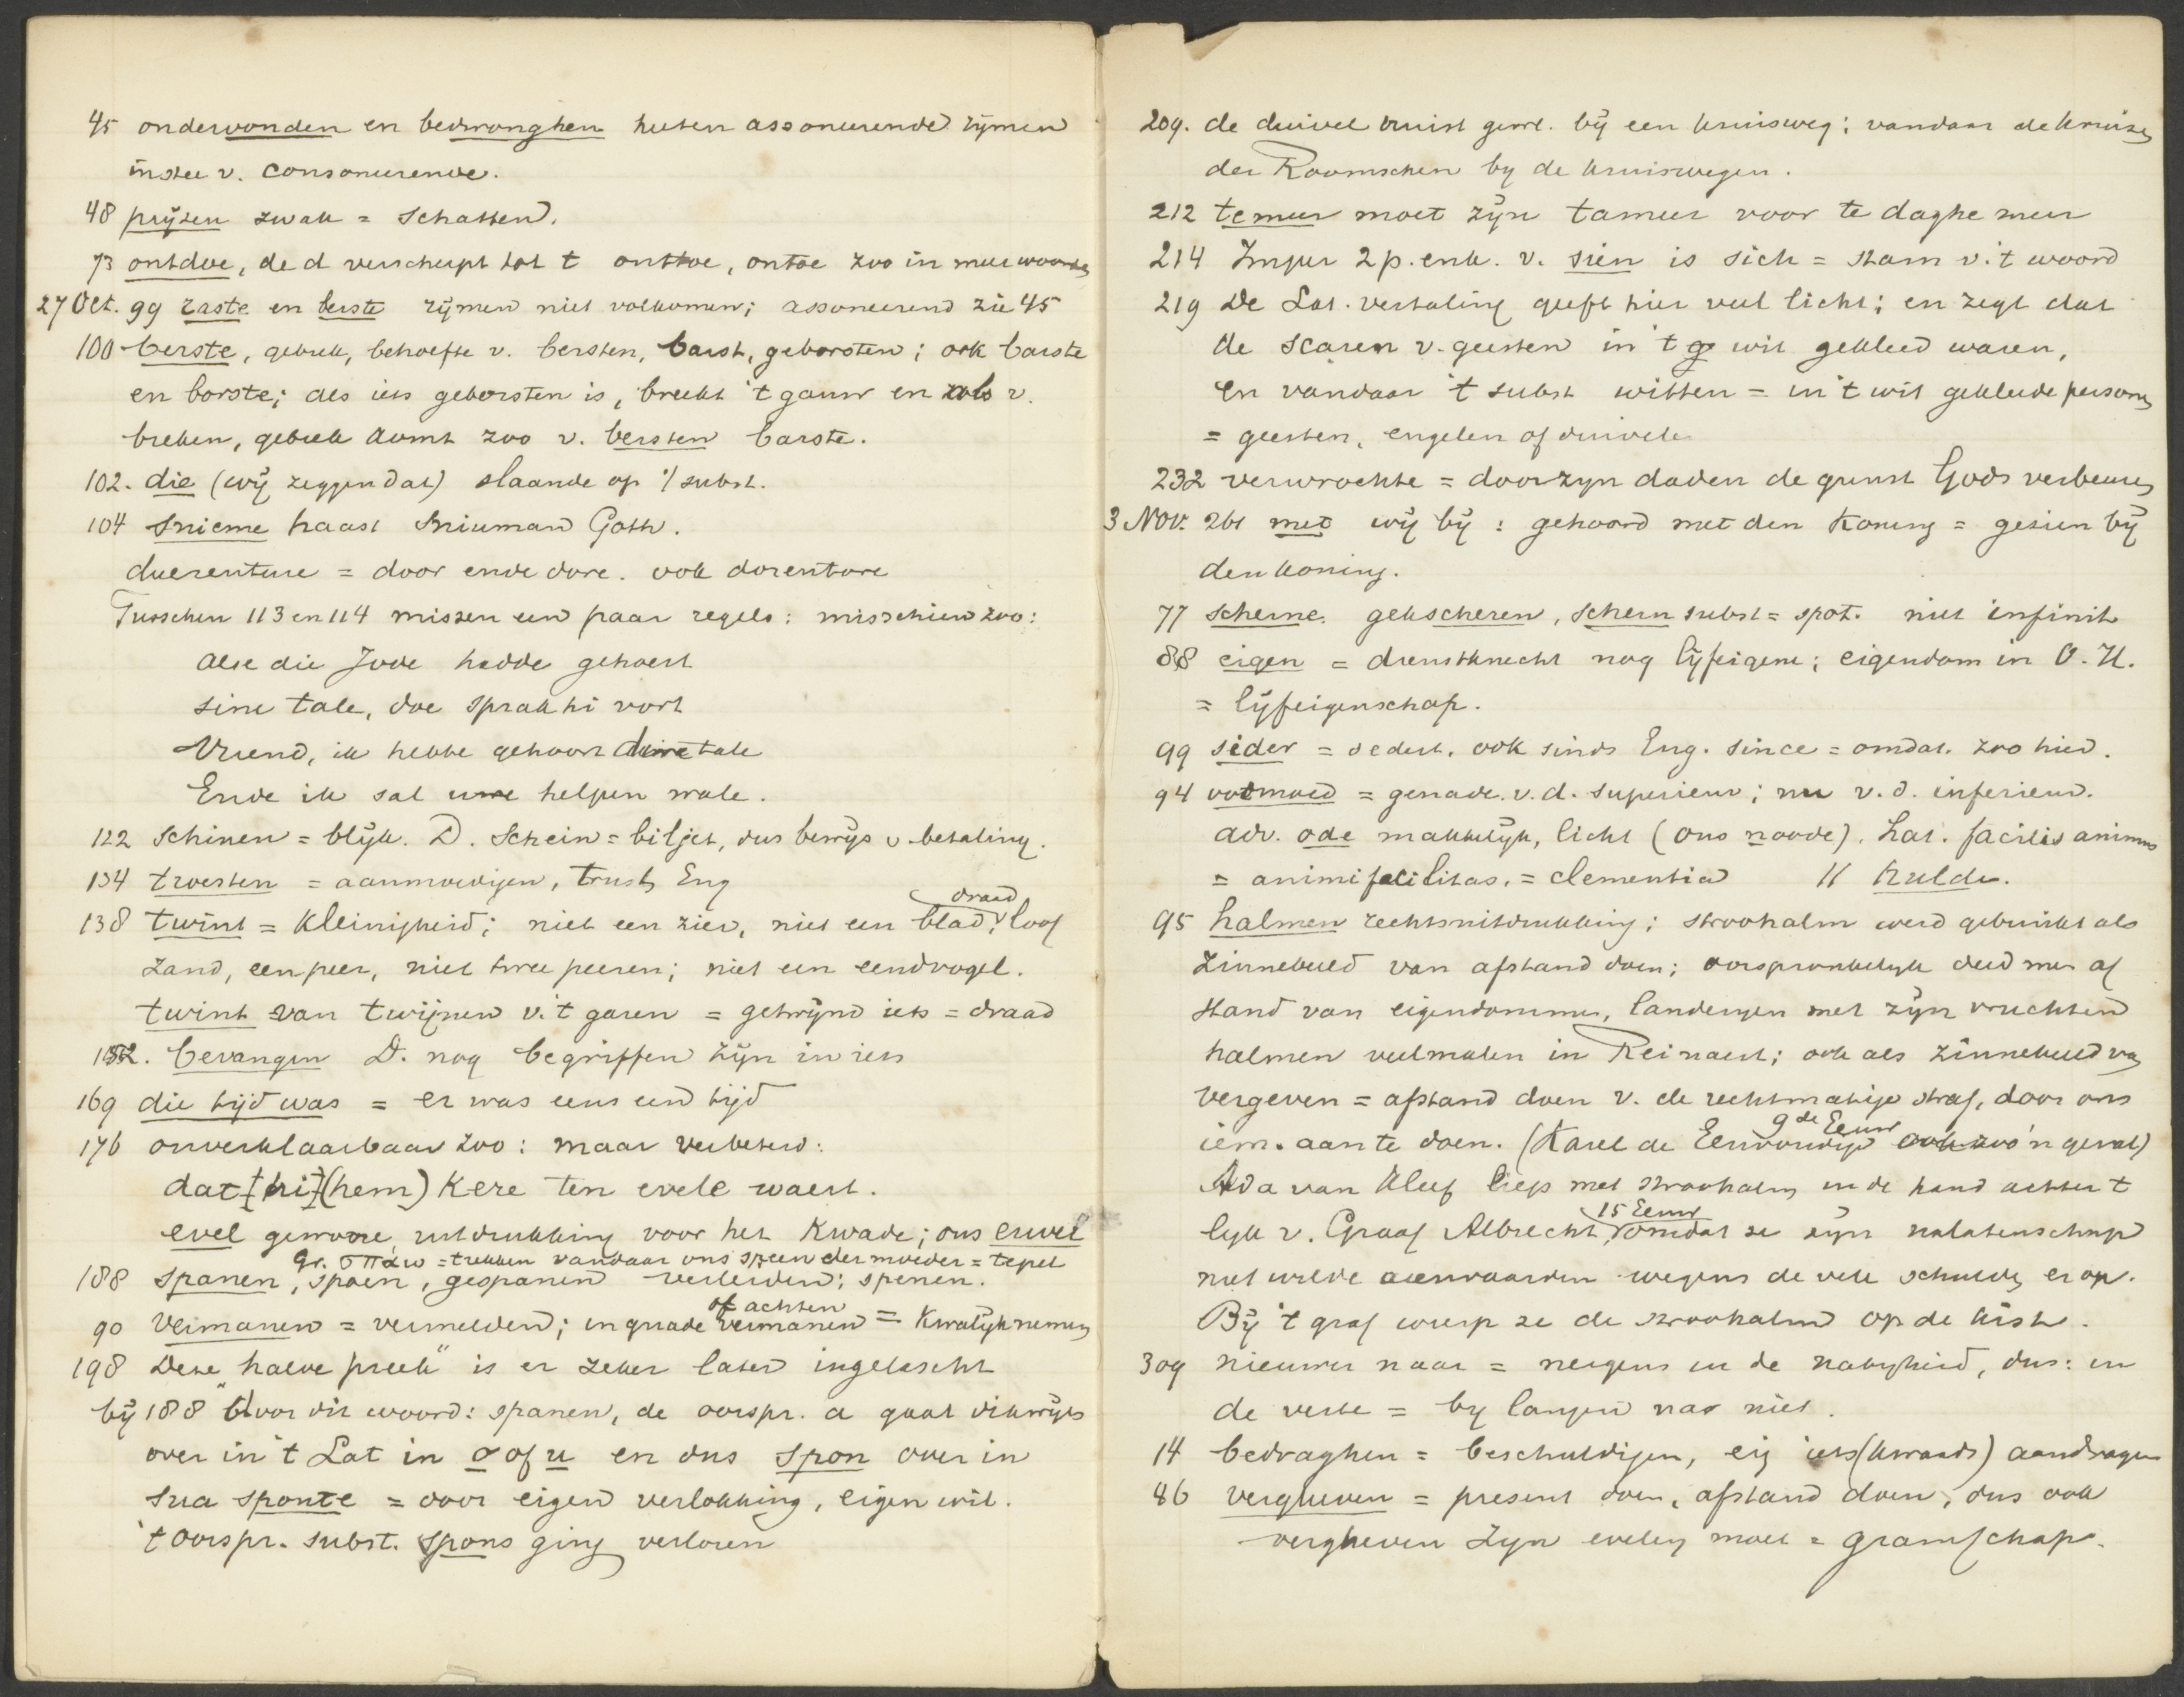 45 ondervonden en bedwonghen heeten assoneerende rijmen
in stee v. consoneerende.
48 prijzen zwak = schatten.
73 ontdoe, de d verscherpt tot t onttoe, ontoe zoo in meer woorden
27 Oct. 99 raste en berste rijmen niet volkomen; assoneerend zie 45
100 berste, gebrek, behoefte v. bersten, barst, geborsten; ook barste
en borste; als iets geborsten is, breekt 't gauw en als v.
breken, gebrek komt zoo v. bersten barste.
102. die (wij zeggen dat) slaande op 't subst.
104 snieme haast sniuman Goth.
duerenture = door ende dore. ook dorentore
Tusschen 113 en 114 missen een paar regels: misschien zoo:
Alse die Jode hadde gehoert
sine tale, doe sprak hi vort
Vriend, ik hebbe gehoort dine tale
Ende ik sal u helpen wale.
122 schinen = blijk. D. Schein = biljet, dus bewijs v. betaling.
134 troesten = aanmoedigen, trust, Eng
draad
138 twint = kleinigheid; niet een zier, niet een blad, loof
zand, een peer, niet twee peeren; niet een eendvogel.
twint van twijnen v. 't garen = getwijnd iets = draad
152. bevangen D. nog begriffen zijn in iets
169 die tijd was = er was eens een tijd
176 onverklaarbaar zoo: maar verbeterd:
dat [hi] (hem) kere ten evele waert.
evel gewone uitdrukking voor het kwade; ons euvel
gr. σπάω = trekken vandaar ons speen der moeder = tepel
188 spanen, spoen, gespanen verleiden; spenen.
of achten
90 Vermanen = vermelden; in quade vermanen = kwalijk nemen
198 Deze "halve preek" is er zeker later ingelascht
bij 188 "Voor dit woord: spanen, de oorspr. a gaat dikwijls
over in 't Lat in o of u en dus spon over in
sua sponte = door eigen verlokking, eigen wil.
't oorspr. subst. spons ging verloren
209. de duivel huist gew. bij een kruisweg; vandaar de kruisen
der Roomschen by de kruiswegen.
212 temeer moet zijn tameer voor te daghe meer
214 Imper 2 p. enk. v. sien is sich = stam v. 't woord
219 De Lat. vertaling geeft hier veel licht; en zegt dat
de scaren v. geesten in 't wit gekleed waren,
en vandaar 't subst witten = in 't wit gekleede personen
= geesten, engelen of duivels
232 verwrochte = door zyn daden de gunst Gods verbeuren
3 Nov. 261 met wij bij: gehoord met den koning = gezien bij
den koning.
77 scherne. gekscheren, schern subst = spot. niet infinit
88 eigen = dienstknecht nog lijfeigene; eigendom in O. H.
= lijfeigenschap.
99 sider = sedert. ook sinds Eng. since = omdat. zoo hier.
94 ootmoed = genade. v. d. superieur; nu v. d. inferieur.
adv. ode makkelijk, licht (ons noode). Lat. facilis animus
= animi facilitas. = clementia || hulde.
95 halmen rechtsuitdrukking; stroohalm werd gebruikt als
zinnebeeld van afstand doen; oorspronkelyk deed men af
stand van eigendommen, landeryen met zijn vruchten
halmen veelmalen in Reinaert; ook als zinnebeeld van
vergeven = afstand doen v. de rechtmatige straf, door ons
9de Eeuw
iem. aan te doen. (Karel de Eenvoudige ook zoo'n geval)
Ada van Kleef liep met stroohalm in de hand achter 't
15 Eeuw
lijk v. Graaf Albrecht, omdat ze zijn nalatenschap
niet wilde aanvaarden wegens de vele schulden er op.
Bij 't graf wierp ze de stroohalm op de kist.
309 nieuwer naar = nergens in de nabyheid, dus: in
de verte = by langen na niet.
14 bedraghen = beschuldigen, eig iets (kwaads) aandragen
46 vergheven = present doen, afstand doen, dus ook
vergheven zyn evelen moet = gramschap.